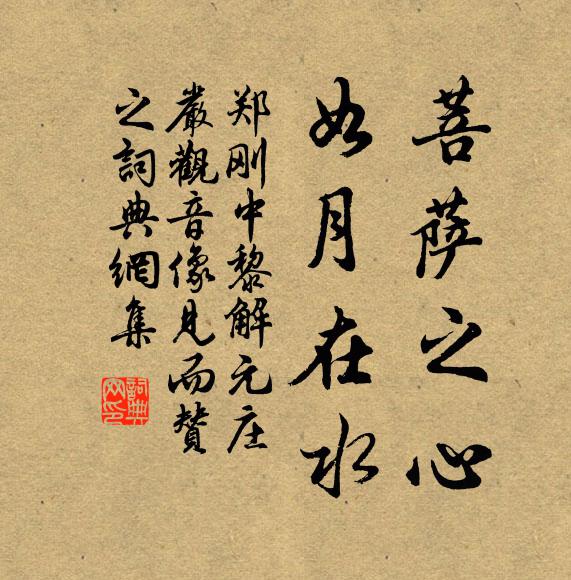 菩萨之心
如月在水
郑刚中黎解元庄
嚴觀音像見而贊
之詞典網集
詞典
网印